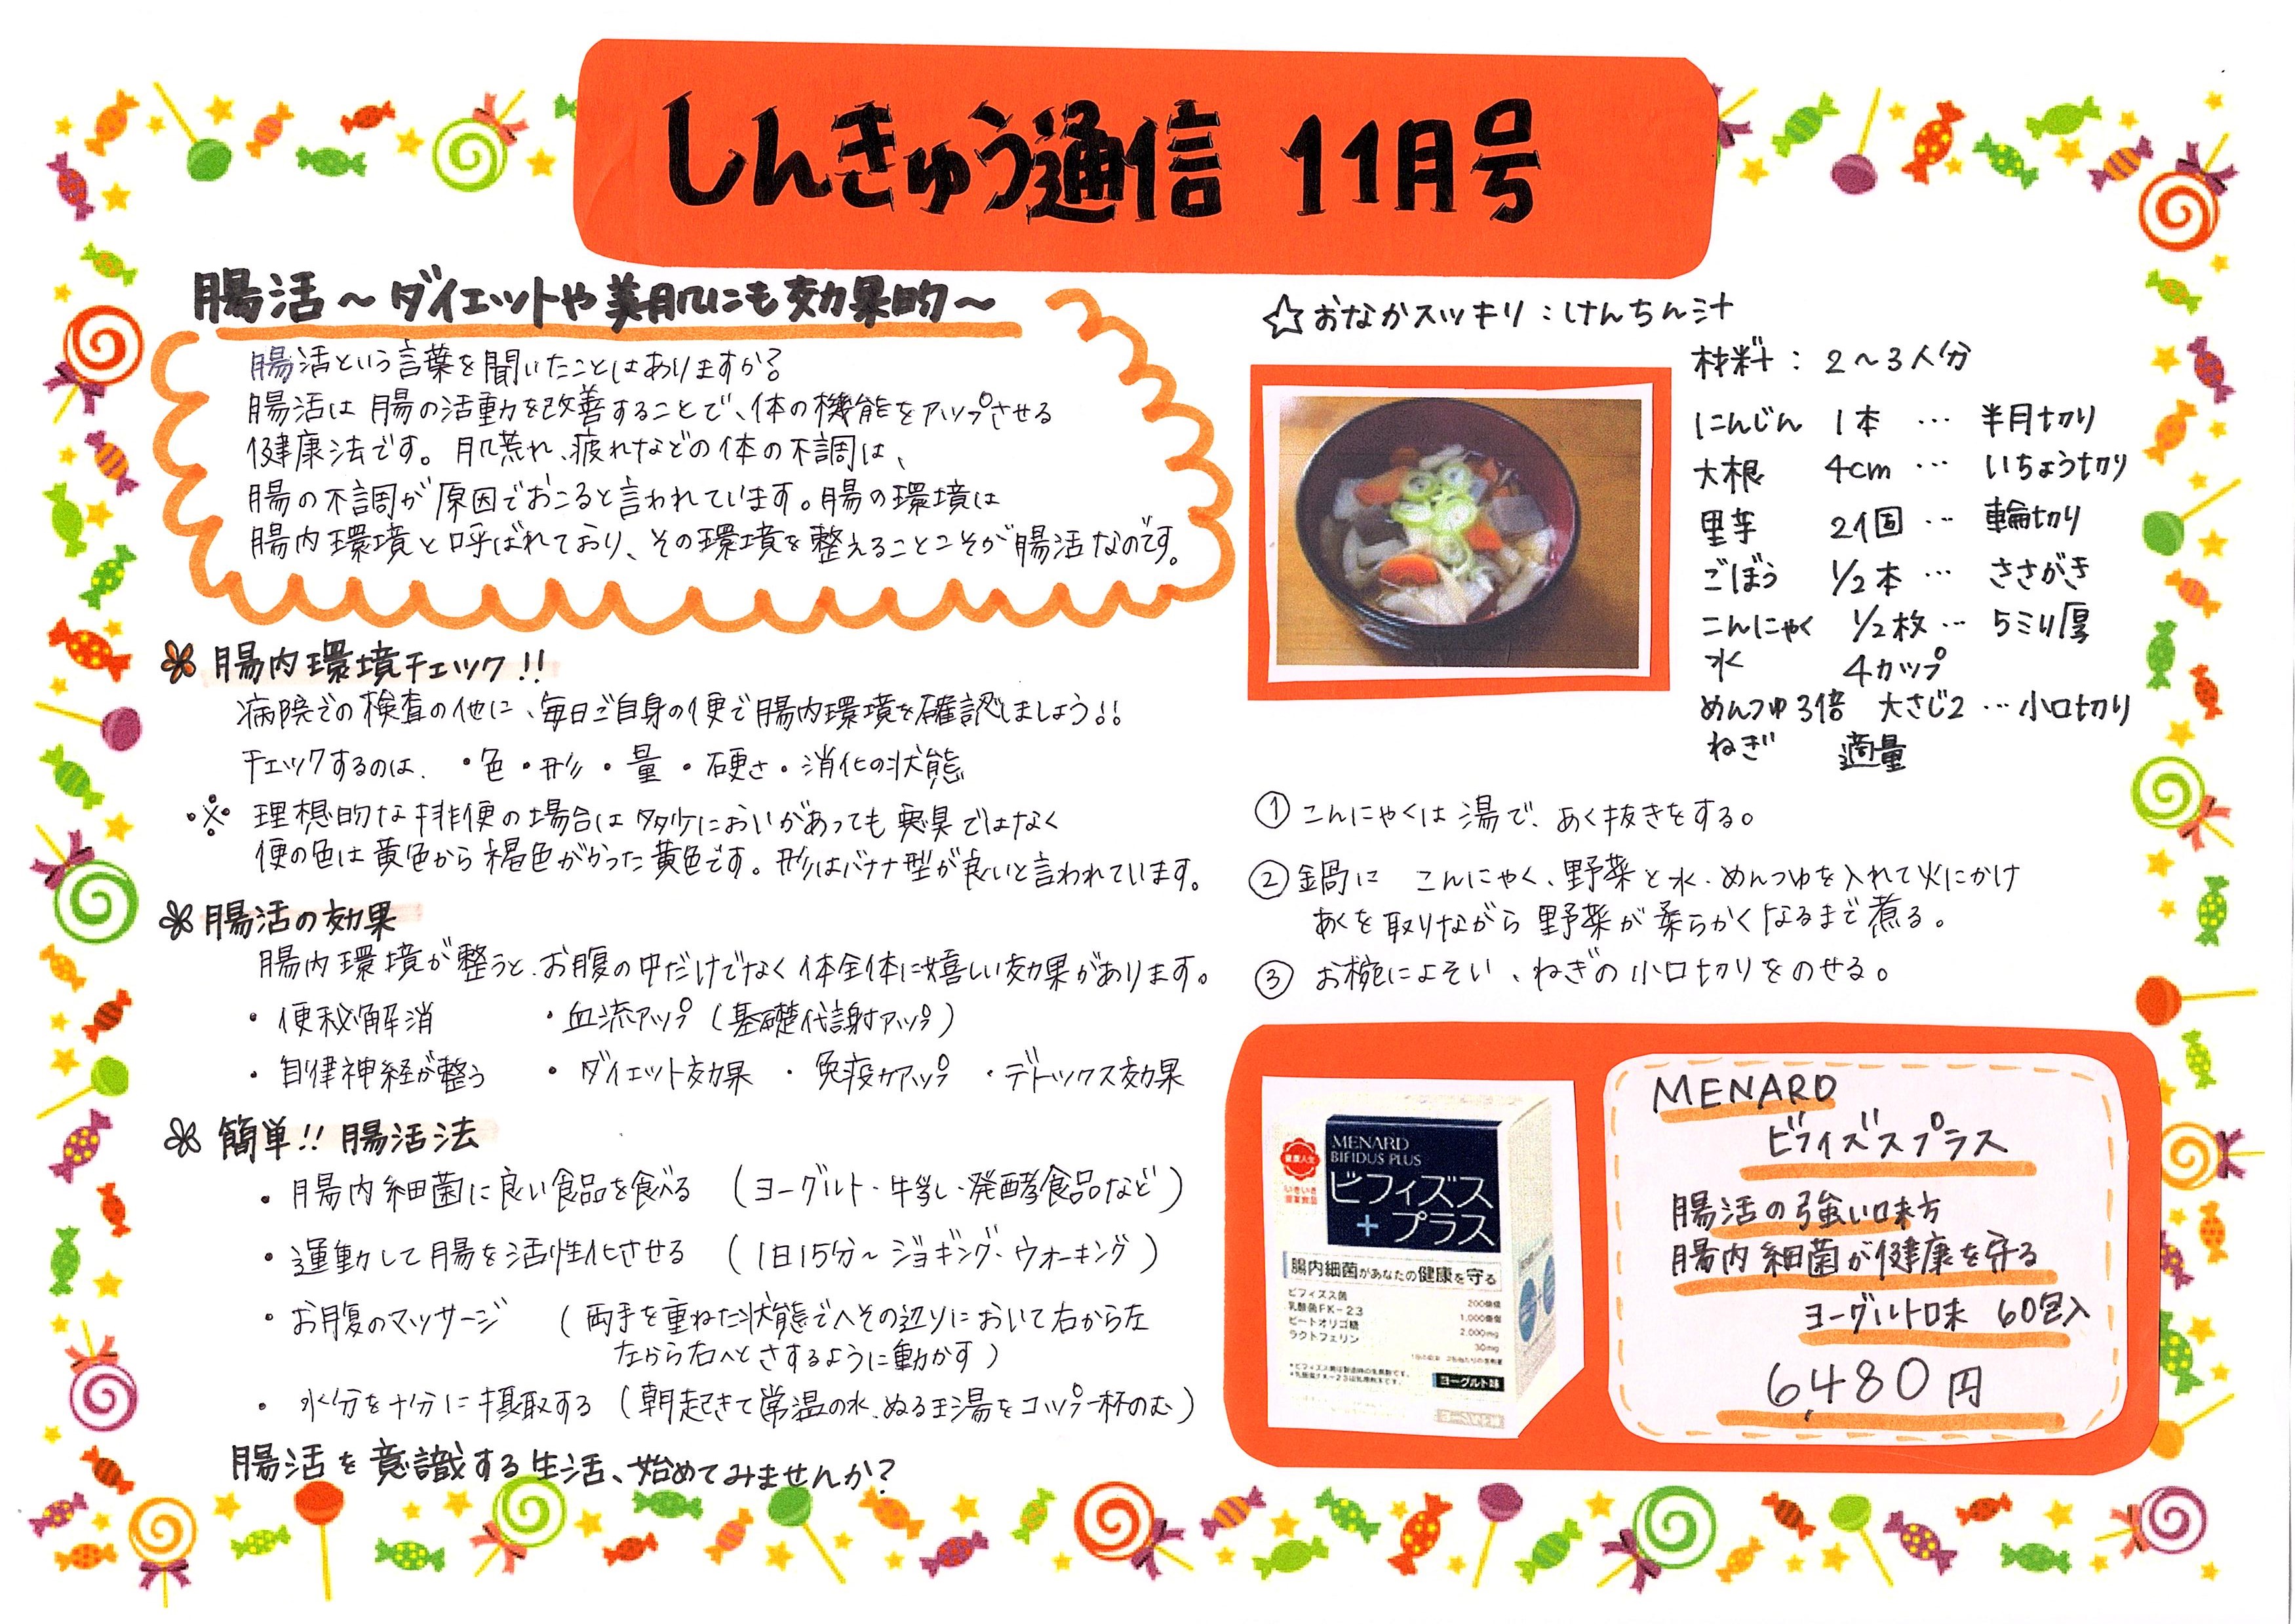 しんきゅう通信 11月号
腸活～ダイエットや美肌にも効果的～
腸活という言葉を聞いたことはありますか?
腸活は腸の活動を改善することで、体の機能をアップさせる
健康法です。肌荒れ、疲れなどの体の不調は、
腸の不調が原因でおこると言われています。腸の環境は
腸内環境と呼ばれており、その環境を整えることこそが腸活なのです。
腸内環境チェック!!
病院での検査の他に、毎日ご自身の便で腸内環境を確認しましょう!!
チェックするのは、・色・形・量・硬さ・消化の状態
※ 理想的な排便の場合は多少においがあっても悪臭ではなく
便の色は黄色から褐色がかった黄色です。形はバナナ型が良いと言われています。
腸活の効果
腸内環境が整うと、お腹の中だけでなく体全体に嬉しい効果があります。
・便秘解消 ・血流アップ(基礎代謝アップ)
・自律神経が整う ・ダイエット効果 ・免疫力アップ ・デトックス効果
簡単!! 腸活法
・腸内細菌に良い食品を食べる (ヨーグルト・牛乳・発酵食品など)
・運動して腸を活性化させる (1日15分～ジョギング、ウォーキング)
・お腹のマッサージ (両手を重ねた状態でへその辺りにおいて右から左
左から右へとさするように動かす)
・水分を十分に摂取する (朝起きて常温の水、ぬるま湯をコップ一杯のむ)
腸活を意識する生活、始めてみませんか?
☆おなかスッキリ:けんちん汁
材料:2～3人分
にんじん 1本 … 半月切り
大根 4cm … いちょう切り
里芋 2個 … 輪切り
ごぼう 1/2本 … ささがき
こんにゃく 1/2枚 … 5ミリ厚
水 4カップ
めんつゆ3倍 大さじ2 … 小口切り
ねぎ 適量
① こんにゃくは湯で、あく抜きをする。
② 鍋に こんにゃく、野菜と水、めんつゆを入れて火にかけ
あくを取りながら野菜が柔らかくなるまで煮る。
③ お椀によそい、ねぎの小口切りをのせる。
健康人生
いきいき
MENARD
BIFIDUS PLUS
ビフィズス
+プラス
腸内細菌があなたの健康を守る
ビフィズス菌 200億個
乳酸菌FK-23 1,000億個
ビートオリゴ糖 2,000mg
ラクトフェリン 30mg
ヨーグルト味
MENARD
ビフィズスプラス
腸活の強い味方
腸内細菌が健康を守る
ヨーグルト味 60包入
6,480円